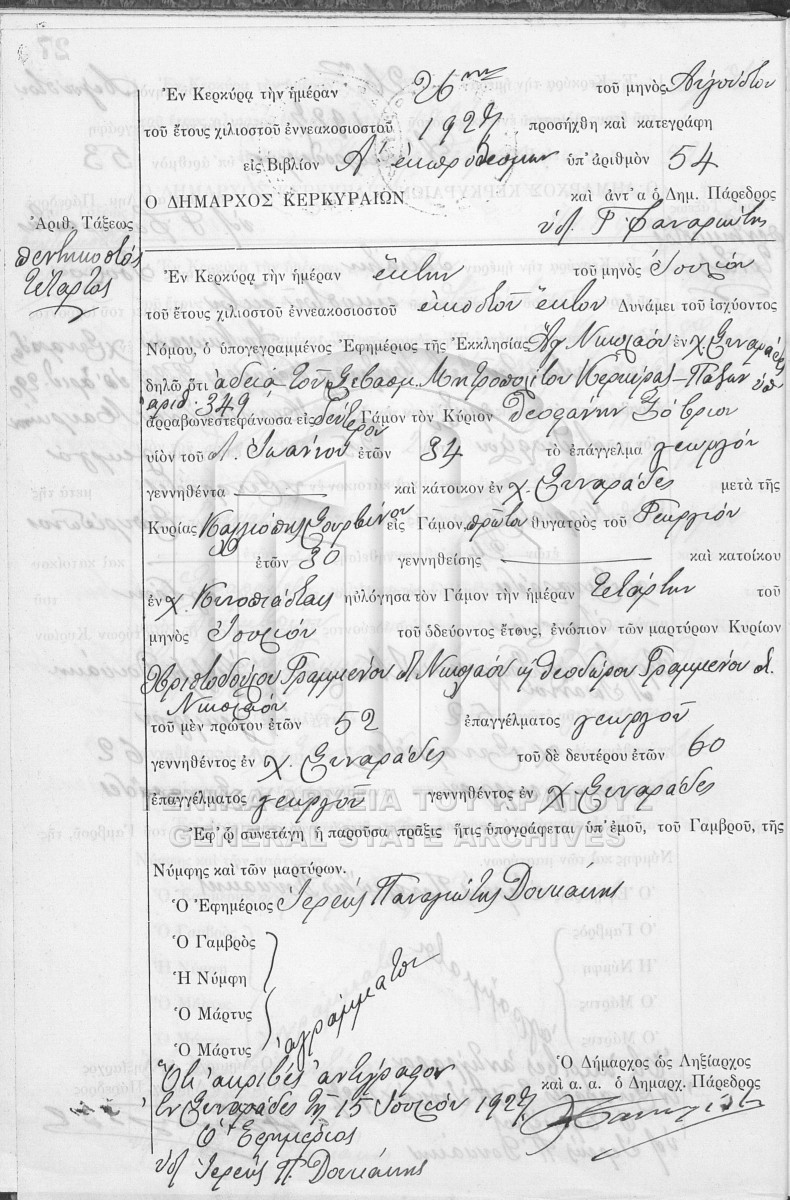 Ἐν Κερκύρᾳ τὴν ἡμέραν 26ην τοῦ μηνὸς Αὐγούστου
τοῦ ἔτους χιλιοστοῦ ἐννεακοσιοστοῦ 1927 προσήχθη καὶ κατεγράφη
εἰς Βιβλίον Α' ἐκπροθέσμων ὑπ' ἀριθμὸν 54
Ο ΔΗΜΑΡΧΟΣ ΚΕΡΚΥΡΑΙΩΝ καὶ ἀντ' α ὁ Δημ. Πάρεδρος
Ἀριθ. Τάξεως
πεντηκοστὸς
τέταρτος
Ἐν Κερκύρᾳ τὴν ἡμέραν ἕκτην τοῦ μηνὸς Ἰουνίου
τοῦ ἔτους χιλιοστοῦ ἐννεακοσιοστοῦ εἰκοστοῦ Δυνάμει τοῦ ἰσχύοντος
Νόμου, ὁ ὑπογεγραμμένος Ἐφημέριος τῆς Ἐκκλησίας Ἁγ Νικολάου ἐν χ. Σιναράδες
δηλῶ ὅτι ἀδείᾳ τοῦ Σεβασμ. Μητροπολίτου Κερκύρας - Παξῶν ὑπ
ἀριθ. 349
ἀρραβωνεστεφάνωσα εἰς δεύτερον Γάμον τὸν Κύριον Θεοφάνην
υἱὸν τοῦ Ἰωάννου ἐτῶν 34 τὸ ἐπάγγελμα γεωργόν
γεννηθέντα καὶ κάτοικον ἐν χ. Σιναράδες μετὰ τῆς
Κυρίας Καλλιόπης εἰς Γάμον πρῶτον θυγατρὸς τοῦ Γεωργίου
ἐτῶν 30 γεννηθείσης καὶ κατοίκου
ἐν χ. Κυνοπιάστας ηὐλόγησα τὸν Γάμον τὴν ἡμέραν τετάρτην τοῦ
μηνὸς Ἰουνίου τοῦ ὁδεύοντος ἔτους, ἐνώπιον τῶν μαρτύρων Κυρίων
Χριστοδούλου Γραμμένου Νικολάου κ Θεοδώρου Γραμμένου
Νικολάου
τοῦ μὲν πρώτου ἐτῶν 52 ἐπαγγέλματος γεωργοῦ
γεννηθέντος ἐν χ. Σιναράδες τοῦ δὲ δευτέρου ἐτῶν 60
ἐπαγγέλματος γεωργοῦ γεννηθέντος ἐν χ. Σιναράδες
ΓΕΝΙΚΑ ΑΡΧΕΙΑ ΤΟΥ ΚΡΑΤΟΥΣ
GENERAL STATE ARCHIVES
Ἐφ' ᾧ συνετάγη ἡ παροῦσα πρᾶξις ἥτις ὑπογράφεται ὑπ' ἐμοῦ, τοῦ Γαμβροῦ, τῆς
Νύμφης καὶ τῶν μαρτύρων.
Ὁ Ἐφημέριος Ἱερεὺς Παναγιώτης Δουκάκης
Ὁ Γαμβρὸς
Ἡ Νύμφη
Ὁ Μάρτυς
Ὁ Μάρτυς
ἀγράμματοι
Ὅτι ἀκριβὲς ἀντίγραφον
Ἐν Σιναράδες τῇ 15 Ἰουνίου 1927
Ὁ Ἐφημέριος
Ἱερεὺς Π. Δουκάκης
Ὁ Δήμαρχος ὡς Ληξίαρχος
καὶ α. α. ὁ Δημαρχ. Πάρεδρος